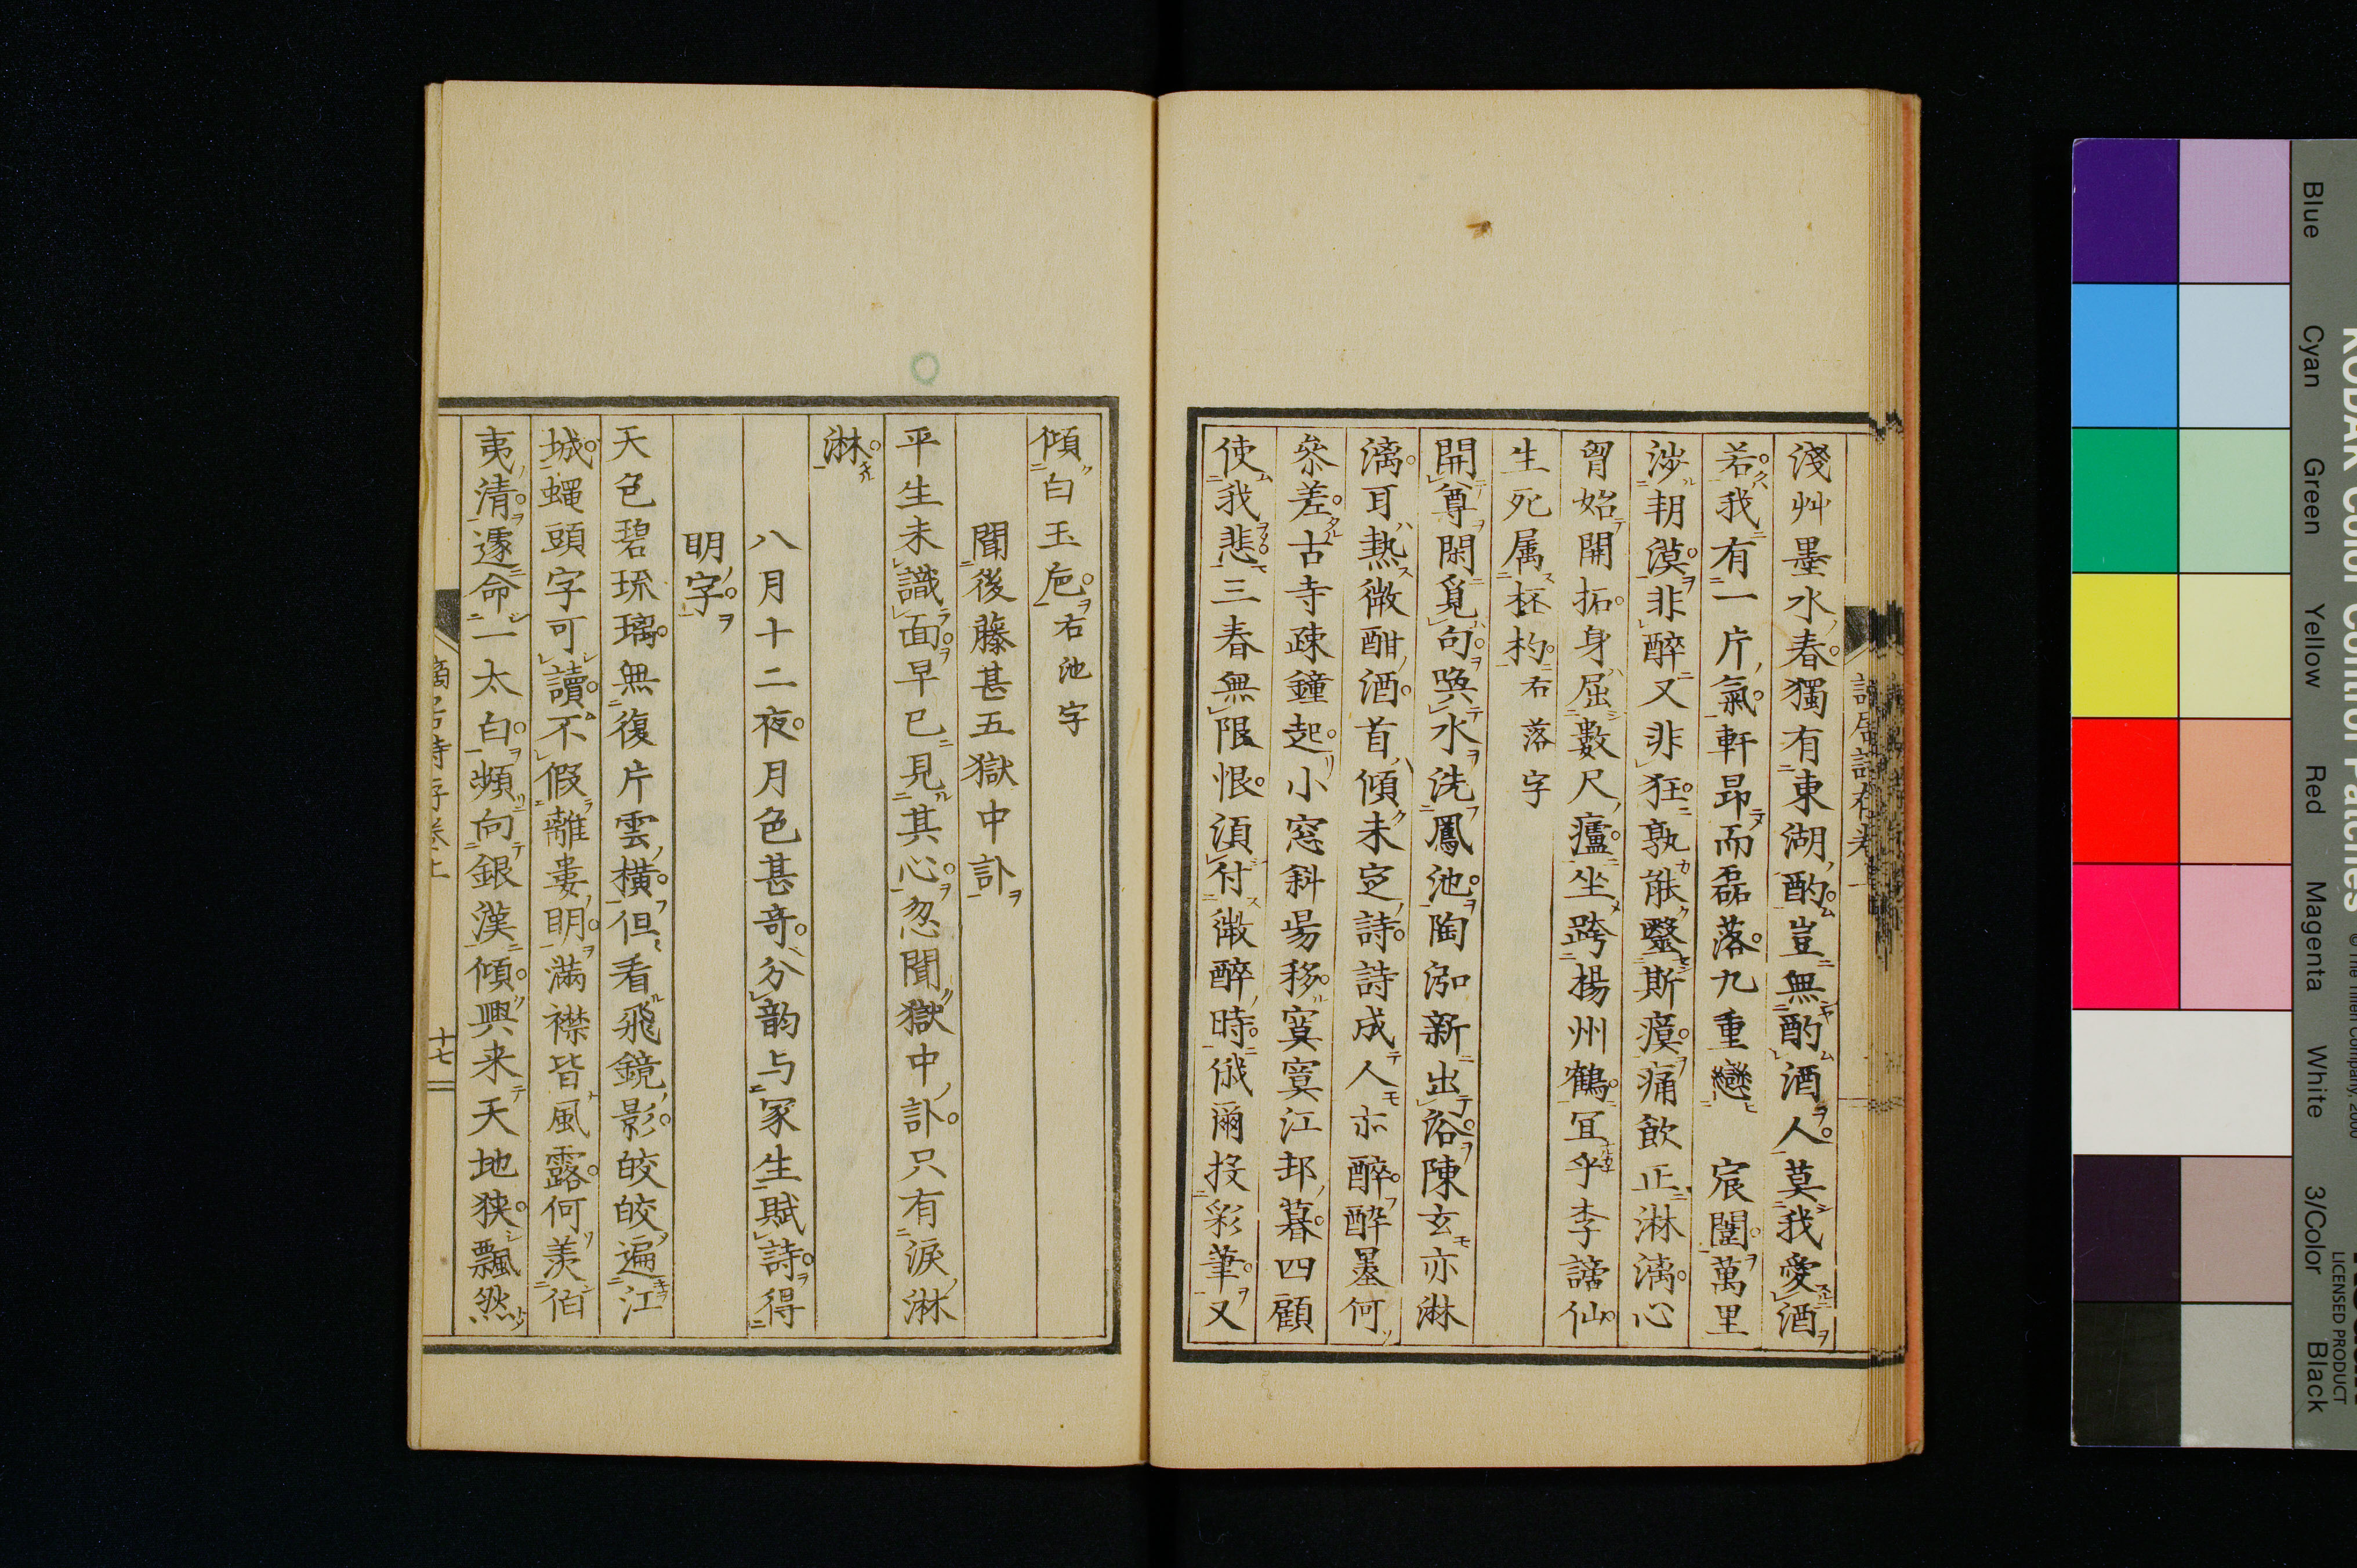 淺艸墨水春獨有東湖酌豈無酌酒人莫我愛酒
若我有一片氣軒昂而磊落九重戀宸闥萬里
涉朔漠非醉又非狂孰能毉斯瘼痛飲正淋漓心
胷始開拓身屈數尺癯坐跨揚州鶴冝乎李謫仙
生死属杯杓右落字
開尊閑覓句喚水洗鳳池陶泓新出浴陳玄亦淋
漓耳熱微酣酒首傾未定詩詩成人亦醉醉墨何
叅差古寺疎鐘起小窓斜昜移寞寞江邨暮四顧
使我悲三春無限恨湏付微醉時俄爾投彩筆又
傾白玉卮右池字
聞後藤甚五獄中訃
平生未識面早已見其心忽聞獄中訃只有淚淋
淋
八月十二夜月色甚奇分韵与家生賦詩得
明字
天色碧琉璃無復片雲橫但看飛鏡影皎皎遍江
城蠅頭字可讀不假離婁明滿襟皆風露何羨伯
夷清遂命一太白頻向銀漢傾興来天地狹飄然
十七
Blue
Cyan
Green
Yellow
Red
Magenta
White
3/Color
Black
KODAK Color Control Patches
© The Tiffen Company, 2000
LICENSED PRODUCT